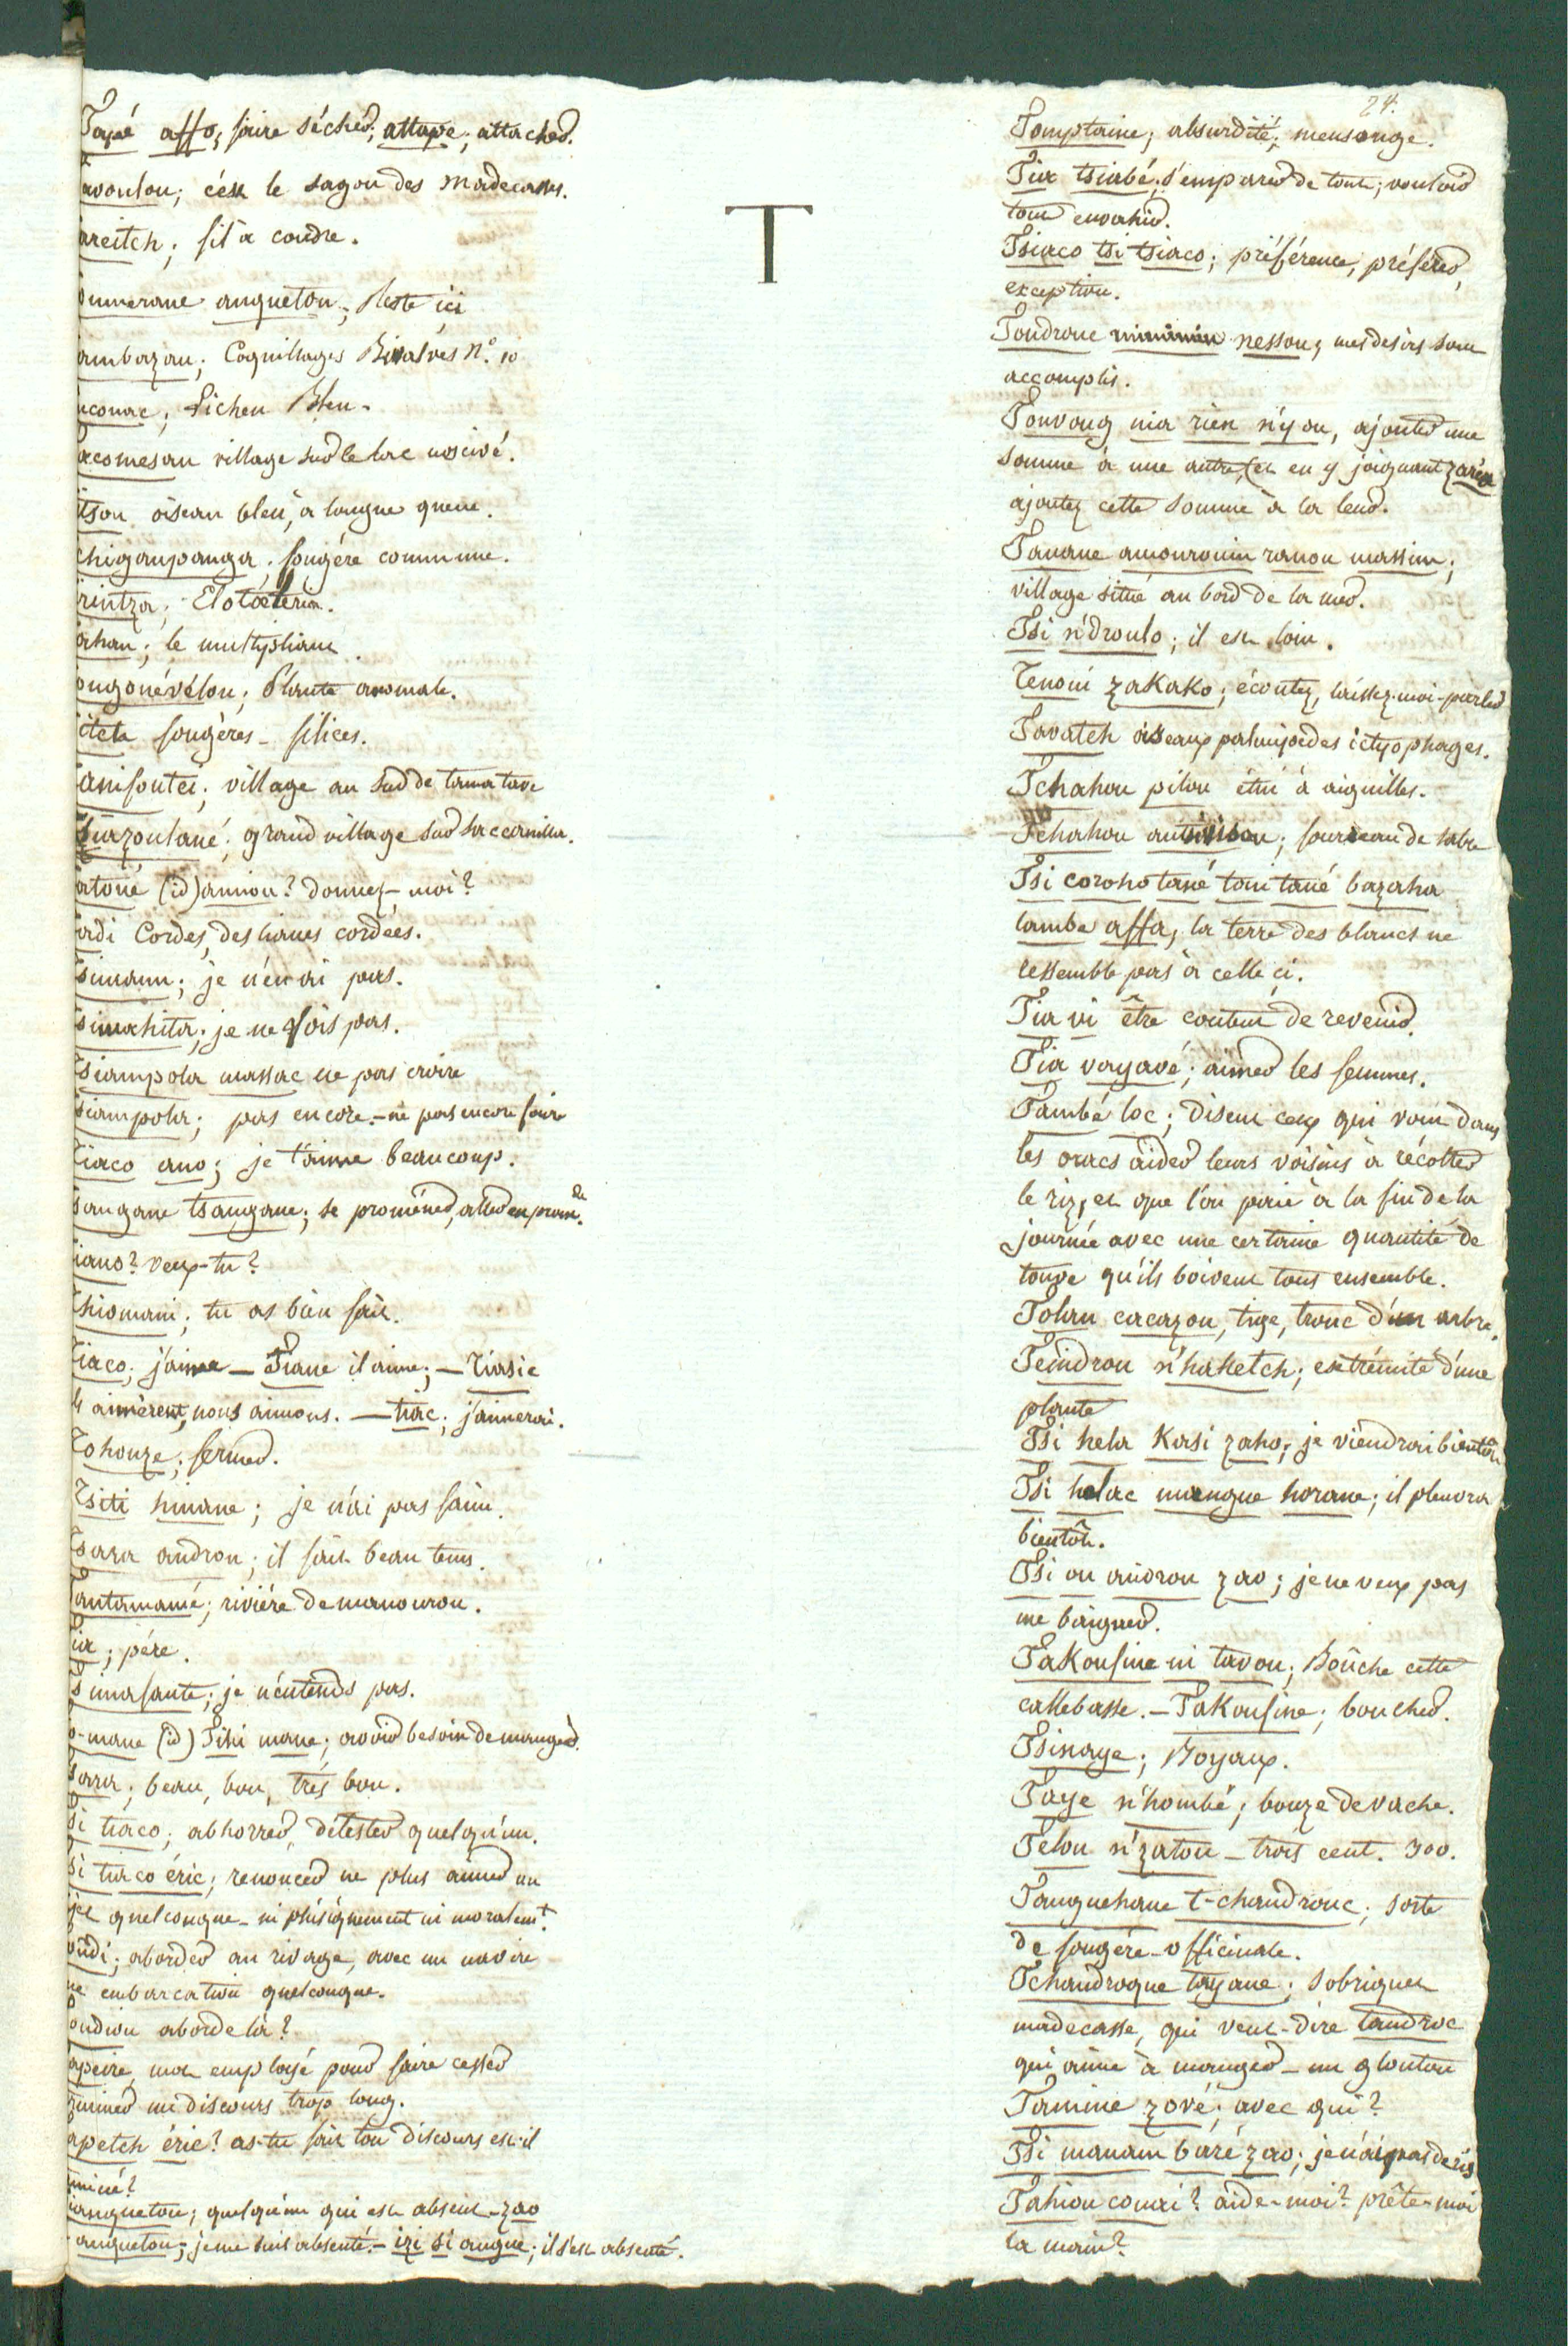 Tapé affo, faire sécher; attape; attacher.
avoulou; c'est le sagou des madecasses.
areitch; fil à coudre.
oumerane anguetou; Reste ici
ambazau; Coquillages Bivalves N.o 10
aconac; Lichen Bleu.
acomesau village sur le lac nossivé.
itsou oiseau bleu, à longue queue.
chigoupanga; fougére commune.
rintza;
ahau; le multipliant
ongonévélou; Plante aromate.
itete fougères - filices.
anifoutei; village au sud de tamatave
siazoulané; grand village sur
atoné (id) anniou? donnez-moi?
adi Cordes, des lianes cordées.
simann; je n'en ai pas.
simahita; je ne vois pas.
Tsiampola massac ne pas croire
siampola; pas encore - ne pas encore fair
Tiaco ano; je t'aime beaucoup.
sangane tsangane; se proméner, aller en prom.de
iano? veux-tu?
Thiomani; tu as bien fait.
Tiaco; j'aime — Tiane il aime; — Tiasie
ls aimèrent, nous aimons. — tiac; j'aimerai.
Tohouze; fermer.
Tsiti hinane; je n'ai pas faim.
Tsara androu; il fait beau tems.
Tantamamé; riviére de manourou.
ia; pére.
simafante; je n'entends pas.
o-mane (id) Tihi mane; avoir besoin de manger.
sara; beau, bon, très bon.
si tiaco; abhorrer, détester quelqu'un.
si tiaco éric; renoncer ne plus aimer un
jet quelconque - ni phisiquement ni moralemt.
oudi; aborder au rivage, avec un navire
ne embarcation quelconque.
oudiou aborde là?
apeire, mot employé pour faire cesser
rminer un discours trop long.
apetch éric? as-tu fait ton discours est-il
rminé?
iangueton; quelqu'un qui est absent - zao
angueton; je me suis absenté. - izi si angue; il s'est absenté.
T
24.
Tomptaine; absurdité; mensonge.
Tia tsiabé; s'emparer de tout; vouloir
tout envahir.
Tsiaco tsi tsiaco; préférence, préférer,
exception.
Toudroue nessou; mes desirs sont
accomplis.
Touvoug nia rien n'y ou, ajouter une
somme à une autre, (et en y joignant zaréo
ajoutez cette somme à la leur.
Tanane amourouin ranou massim;
village situé au bord de la mer.
Tsi n'droulo; il est loin.
Tenoni zakako; écoutez, laissez-moi-parler
Tavatch oiseaux palmipedes ictyophages.
Tchahou pilou étui à aiguilles.
Tchahou; fourreau de sabre
Tsi coroho tané toni tané bazaha
tambe affa, la terre des blancs ne
ressemble pas à celle ci.
Tia vi être content de revenir.
Tia vayavé; aimer les femmes.
També loc; disent ceux qui vont dans
les oracs aider leurs voisins à récolter
le riz, et que l'on paie à la fin de la
journée avec une certaine quantité de
touve qu'ils boivent tous ensemble.
Tohau cacazou, tige, tronc d'un arbre.
Teindrou n'haketch; extrémité d'une
plante
Tsi hela Kasi zaho; je viendrai bientôt
Tsi helac mangue horane; il pleuvra
bientôt.
Tsi ou androu zao; je ne veux pas
me baigner.
Takoufine ni tavou; Boûche cette
callebasse. - Takoufine; boucher.
Tsinaye; Boyaux.
Taye n'hombé; bouze de vache.
Telou n'zatou - trois cent. 300.
Tanguehane t-chandrouc; sorte
de fougére - officinale.
Tchandroque tayane; sobriquet
madecasse, qui veut-dire tandroc
qui aime à manger - un glouton
Tamine zové; avec qui?
Tsi manam baré zao; je n'ai pas de riz
Tahiou couai? aide-moi? prête-moi
la main?